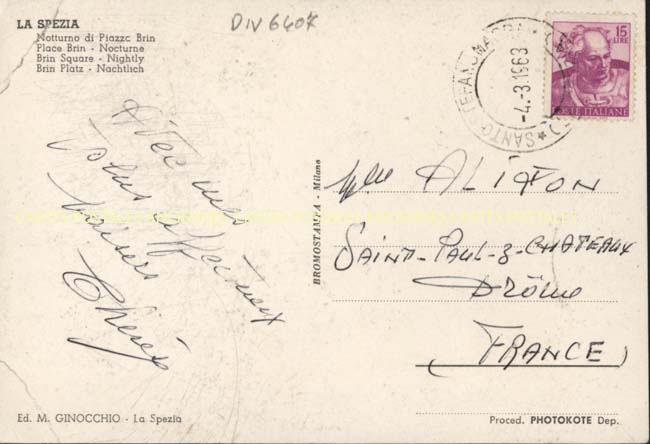 LA SPEZIA
Notturno di Piazzc Brin
Place Brin - Nocturne
Brin Square - Nightly
Brin Platz - Nachtlich
DIV6407
-4.-3.1963
SANTO STEFANO
15
LIRE
POSTE ITALIANE
Avec mes
plus affectueux
baisers
Thérèse
BROMOSTAMPA - Milano
Mlle ALIXON
SAINT-PAUL-3-CHATEAUX
DRÔME
FRANCE
Ed. M. GINOCCHIO - La Spezia
Proced. PHOTOKOTE Dep.